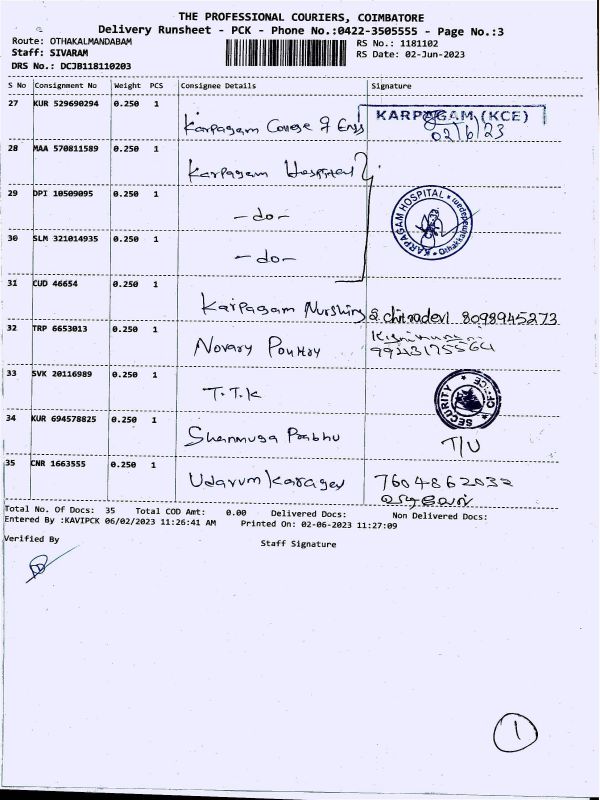 THE PROFESSIONAL COURIERS, COIMBATORE
Delivery Runsheet - PCK - Phone No.:0422-3505555 - Page No.:3
Route: OTHAKALMANDABAM
RS No.: 1181102
Staff: SIVARAM
RS Date: 02-Jun-2023
DRS No.: DCJB118110203
S No Consignment No Weight PCS Consignee Details Signature
27 KUR 529690294 0.250 1 Karpagam College of Engg KARPAGAM (KCE)
02/6/23
28 MAA 570811589 0.250 1 Karpagam Hospital
29 DPI 10509095 0.250 1 -do-
KARPAGAM HOSPITAL * Othakkalmandapam *
30 SLM 321014935 0.250 1 -do-
31 CUD 46654 0.250 1 Karpagam Nurshing chitradevi 8098945273
32 TRP 6653013 0.250 1 Novary Poultry
9943175564
33 SVK 20116989 0.250 1 T.T.K
SECURITY * OFFICE *
34 KUR 694578825 0.250 1 Shanmuga Prabhu T/U
35 CNR 1663555 0.250 1 Udarum Karagey 7604862032
Total No. Of Docs: 35 Total COD Amt: 0.00 Delivered Docs: Non Delivered Docs:
Entered By :KAVIPCK 06/02/2023 11:26:41 AM Printed On: 02-06-2023 11:27:09
Verified By
Staff Signature
1